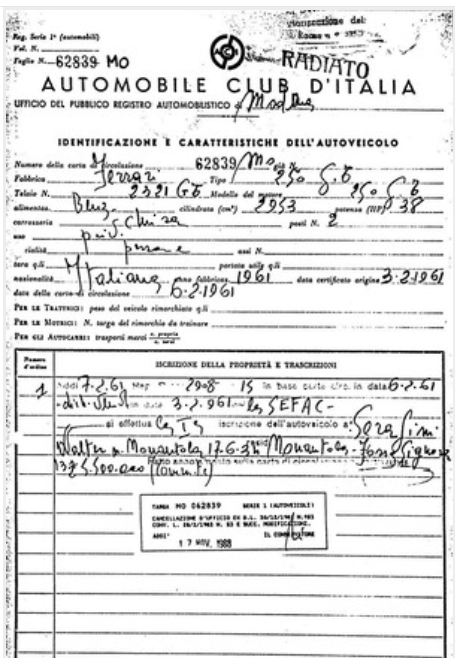 Reg. Serie 1ª (automobili)
Vol. N.
Foglio N. 62839 MO
RADIATO
AUTOMOBILE CLUB D'ITALIA
UFFICIO DEL PUBBLICO REGISTRO AUTOMOBILISTICO di Modena
IDENTIFICAZIONE E CARATTERISTICHE DELL'AUTOVEICOLO
Numero della carta di circolazione 62839/Mo già N.
Fabbrica Ferrari Tipo 250 G.T
Telaio N. 2321 GT Modello del motore 250 G.T
alimentaz. Benz. cilindrata (cm³) 2953 potenza (HP) 38
carrozzeria chiusa posti N. 2
uso priv.
persone assi N.
tara q.li portata utile q.li
nazionalità Italiana anno fabbricaz. 1961 data certificato origine 3-2-1961
data della carta di circolazione 6-2-1961
PER LE TRATTRICI: peso del veicolo rimorchiato q.li
PER LE MOTRICI: N. targa del rimorchio da trainare
PER GLI AUTOCARRI: trasporti merci c. proprio c. terzi
Numero d'ordine
ISCRIZIONE DELLA PROPRIETÀ E TRASCRIZIONI
1 Addì 7-2-61 2908 15 in base carta circ. in data 6-2-61
in data 3-2-961 la SEFAC
si effettua la iscrizione dell'autoveicolo a:
Walter n. Nonantola 17-6-34 Nonantola
5.500.000
TARGA MO 062839 SERIE 1 (AUTOVEICOLI)
CANCELLAZIONE D'UFFICIO EX D.L.
ADDI' IL CONSERVATORE
17 NOV. 1988